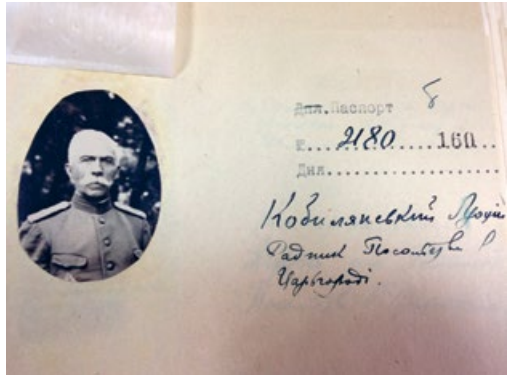 Дип. Паспорт
№....2180.....160..
Дня....................
Кобилянський Луцій
Радник Посольства в
Царьгороді.